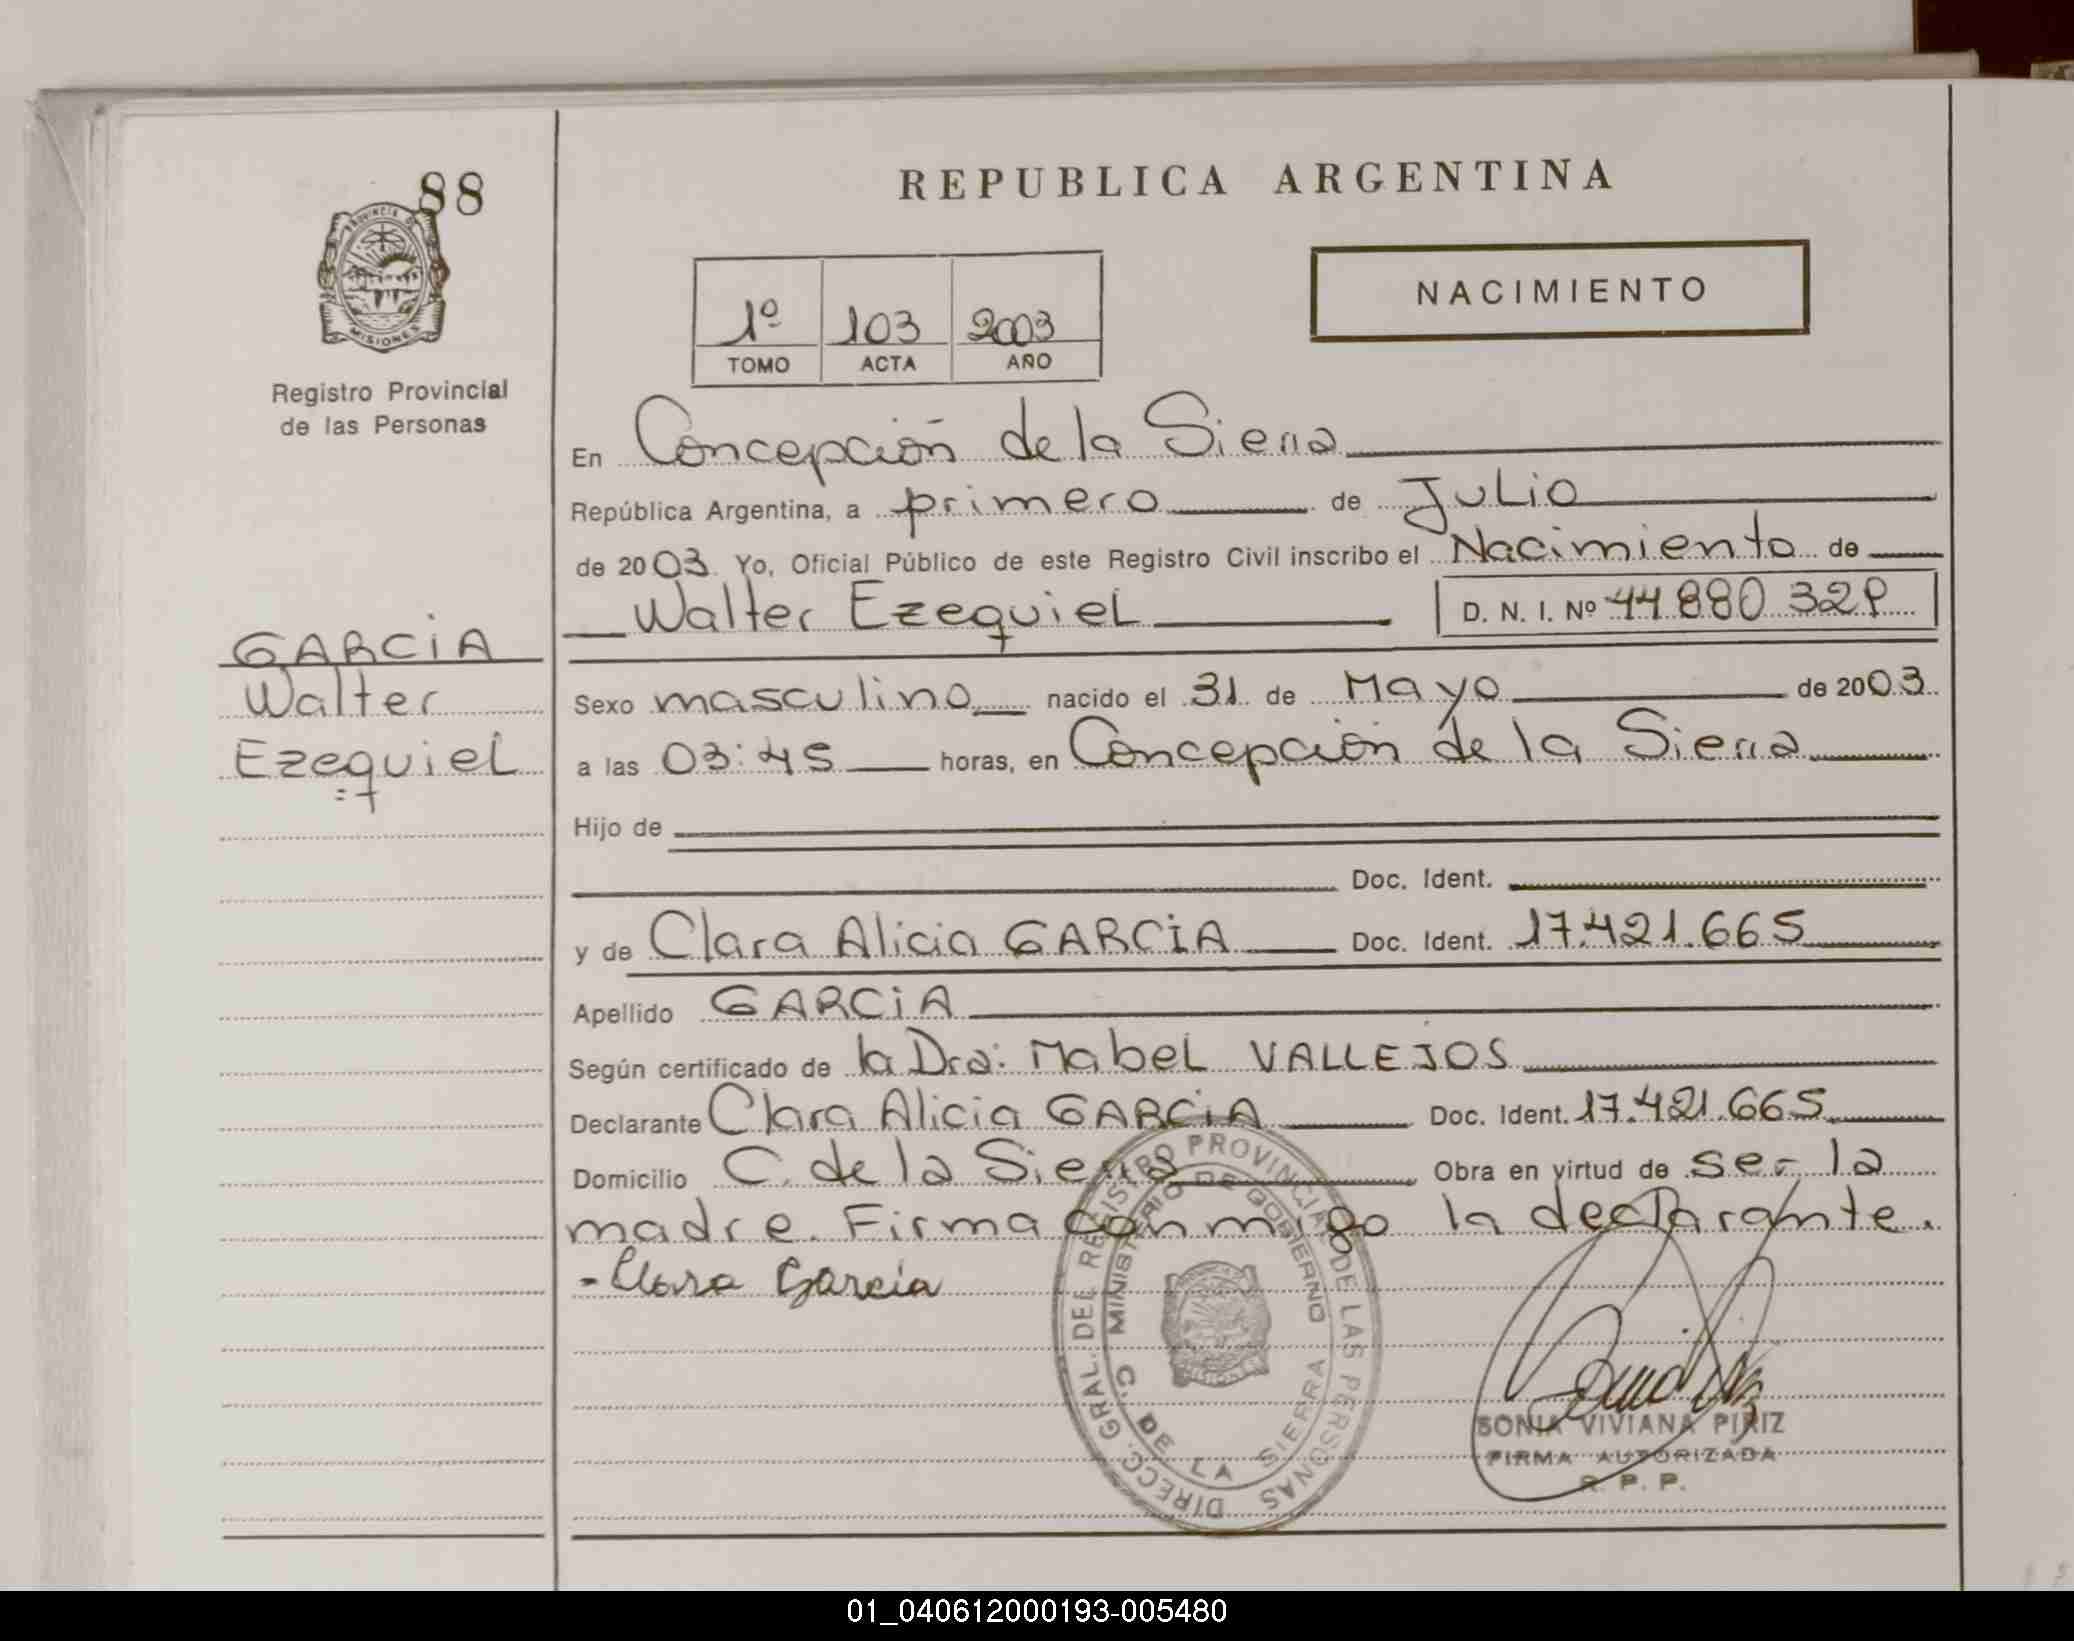 88
REPUBLICA ARGENTINA
PROVINCIA DE MISIONES
Registro Provincial
de las Personas
1º 103 2003
TOMO ACTA AÑO
NACIMIENTO
En Concepción de la Sierra
República Argentina, a primero de Julio
de 2003 Yo, Oficial Público de este Registro Civil inscribo el Nacimiento de
Walter Ezequiel D. N. I. Nº 44 880 329
GARCIA
Walter
Ezequiel
Sexo masculino nacido el 31 de Mayo de 2003
a las 03:45 horas, en Concepción de la Sierra
Hijo de
Doc. Ident.
y de Clara Alicia GARCIA Doc. Ident. 17.421.665
Apellido GARCIA
Según certificado de la Dra: Mabel VALLEJOS
Declarante Clara Alicia GARCIA Doc. Ident. 17.421.665
Domicilio C. de la Sierra Obra en virtud de ser la
madre. Firma conmigo la declarante.
- Clara García
DIRECC. GRAL. DEL REGISTRO PROVINCIAL DE LAS PERSONAS
MINISTERIO DE GOBIERNO
C. DE LA SIERRA
SONIA VIVIANA PIRIZ
FIRMA AUTORIZADA
R. P. P.
01_040612000193-005480